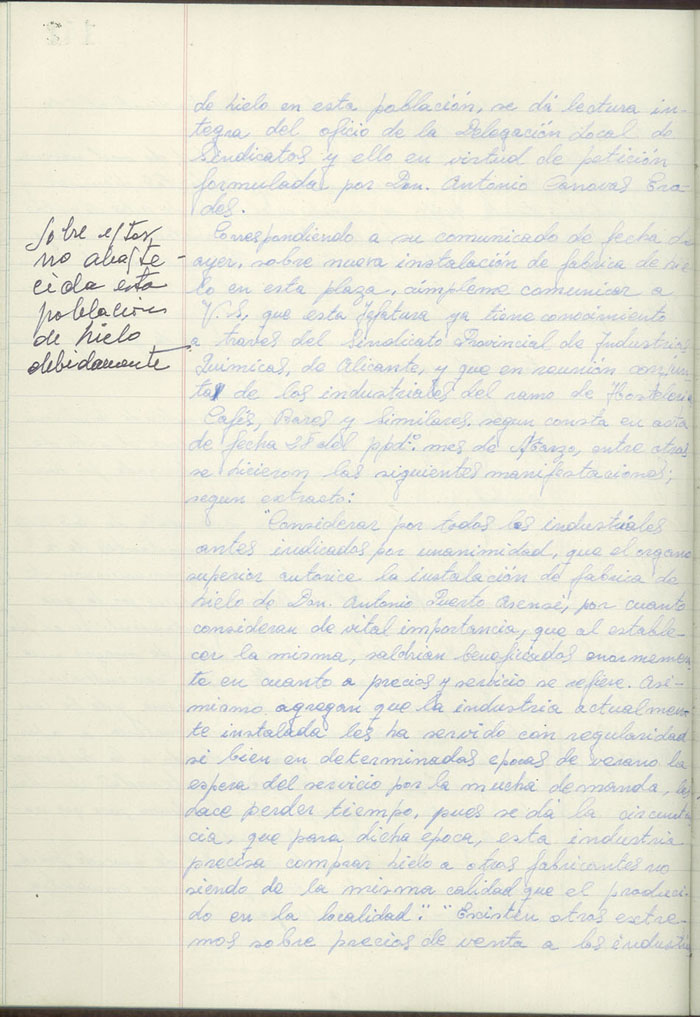 de hielo en esta población, se dá lectura in-
tegra del oficio de la Delegación Local de
Sindicatos y ello en virtud de petición
formulada por Don. Antonio Canovas Era-
des.
Sobre estar
no abaste-
cida esta
poblacion
de hielo
debidamente
Correspondiendo a su comunicado de fecha de
ayer, sobre nueva instalación de fabrica de hie
lo en esta plaza, cúmpleme comunicar a
V.S, que esta Jefatura ya tiene conocimiento
a traves del Sindicato Provincial de Industrias
Quimicas, de Alicante, y que en reunión conjun
ta de los industriales del ramo de Hosteleria
Cafés, Bares y Similares. segun consta en acta
de fecha del ppdº. mes de Marzo, entre otras
se hicieron las siguientes manifestaciones;
segun extracto:
"Considerar por todos los industriales
antes indicados por unanimidad, que el organo
superior autorice la instalación de fabrica de
hielo de Don. Antonio Puerto Asensi, por cuanto
consideran de vital importancia, que al estable-
cer la misma, saldrian beneficados enormemen
te en cuanto a precios y servicio se refiere. Asi-
mismo agregan que la industria actualmen-
te instalada les ha servido con regularidad
si bien en determinadas epocas de verano la
espera del servicio por la mucha demanda, les
hace perder tiempo, pues se dá la circunstan
cia, que para dicha epoca, esta industria
precisa comprar hielo a otros fabricantes no
siendo de la misma calidad que el produci-
do en la localidad". "Existen otros extre-
mos sobre precios de venta a los industria